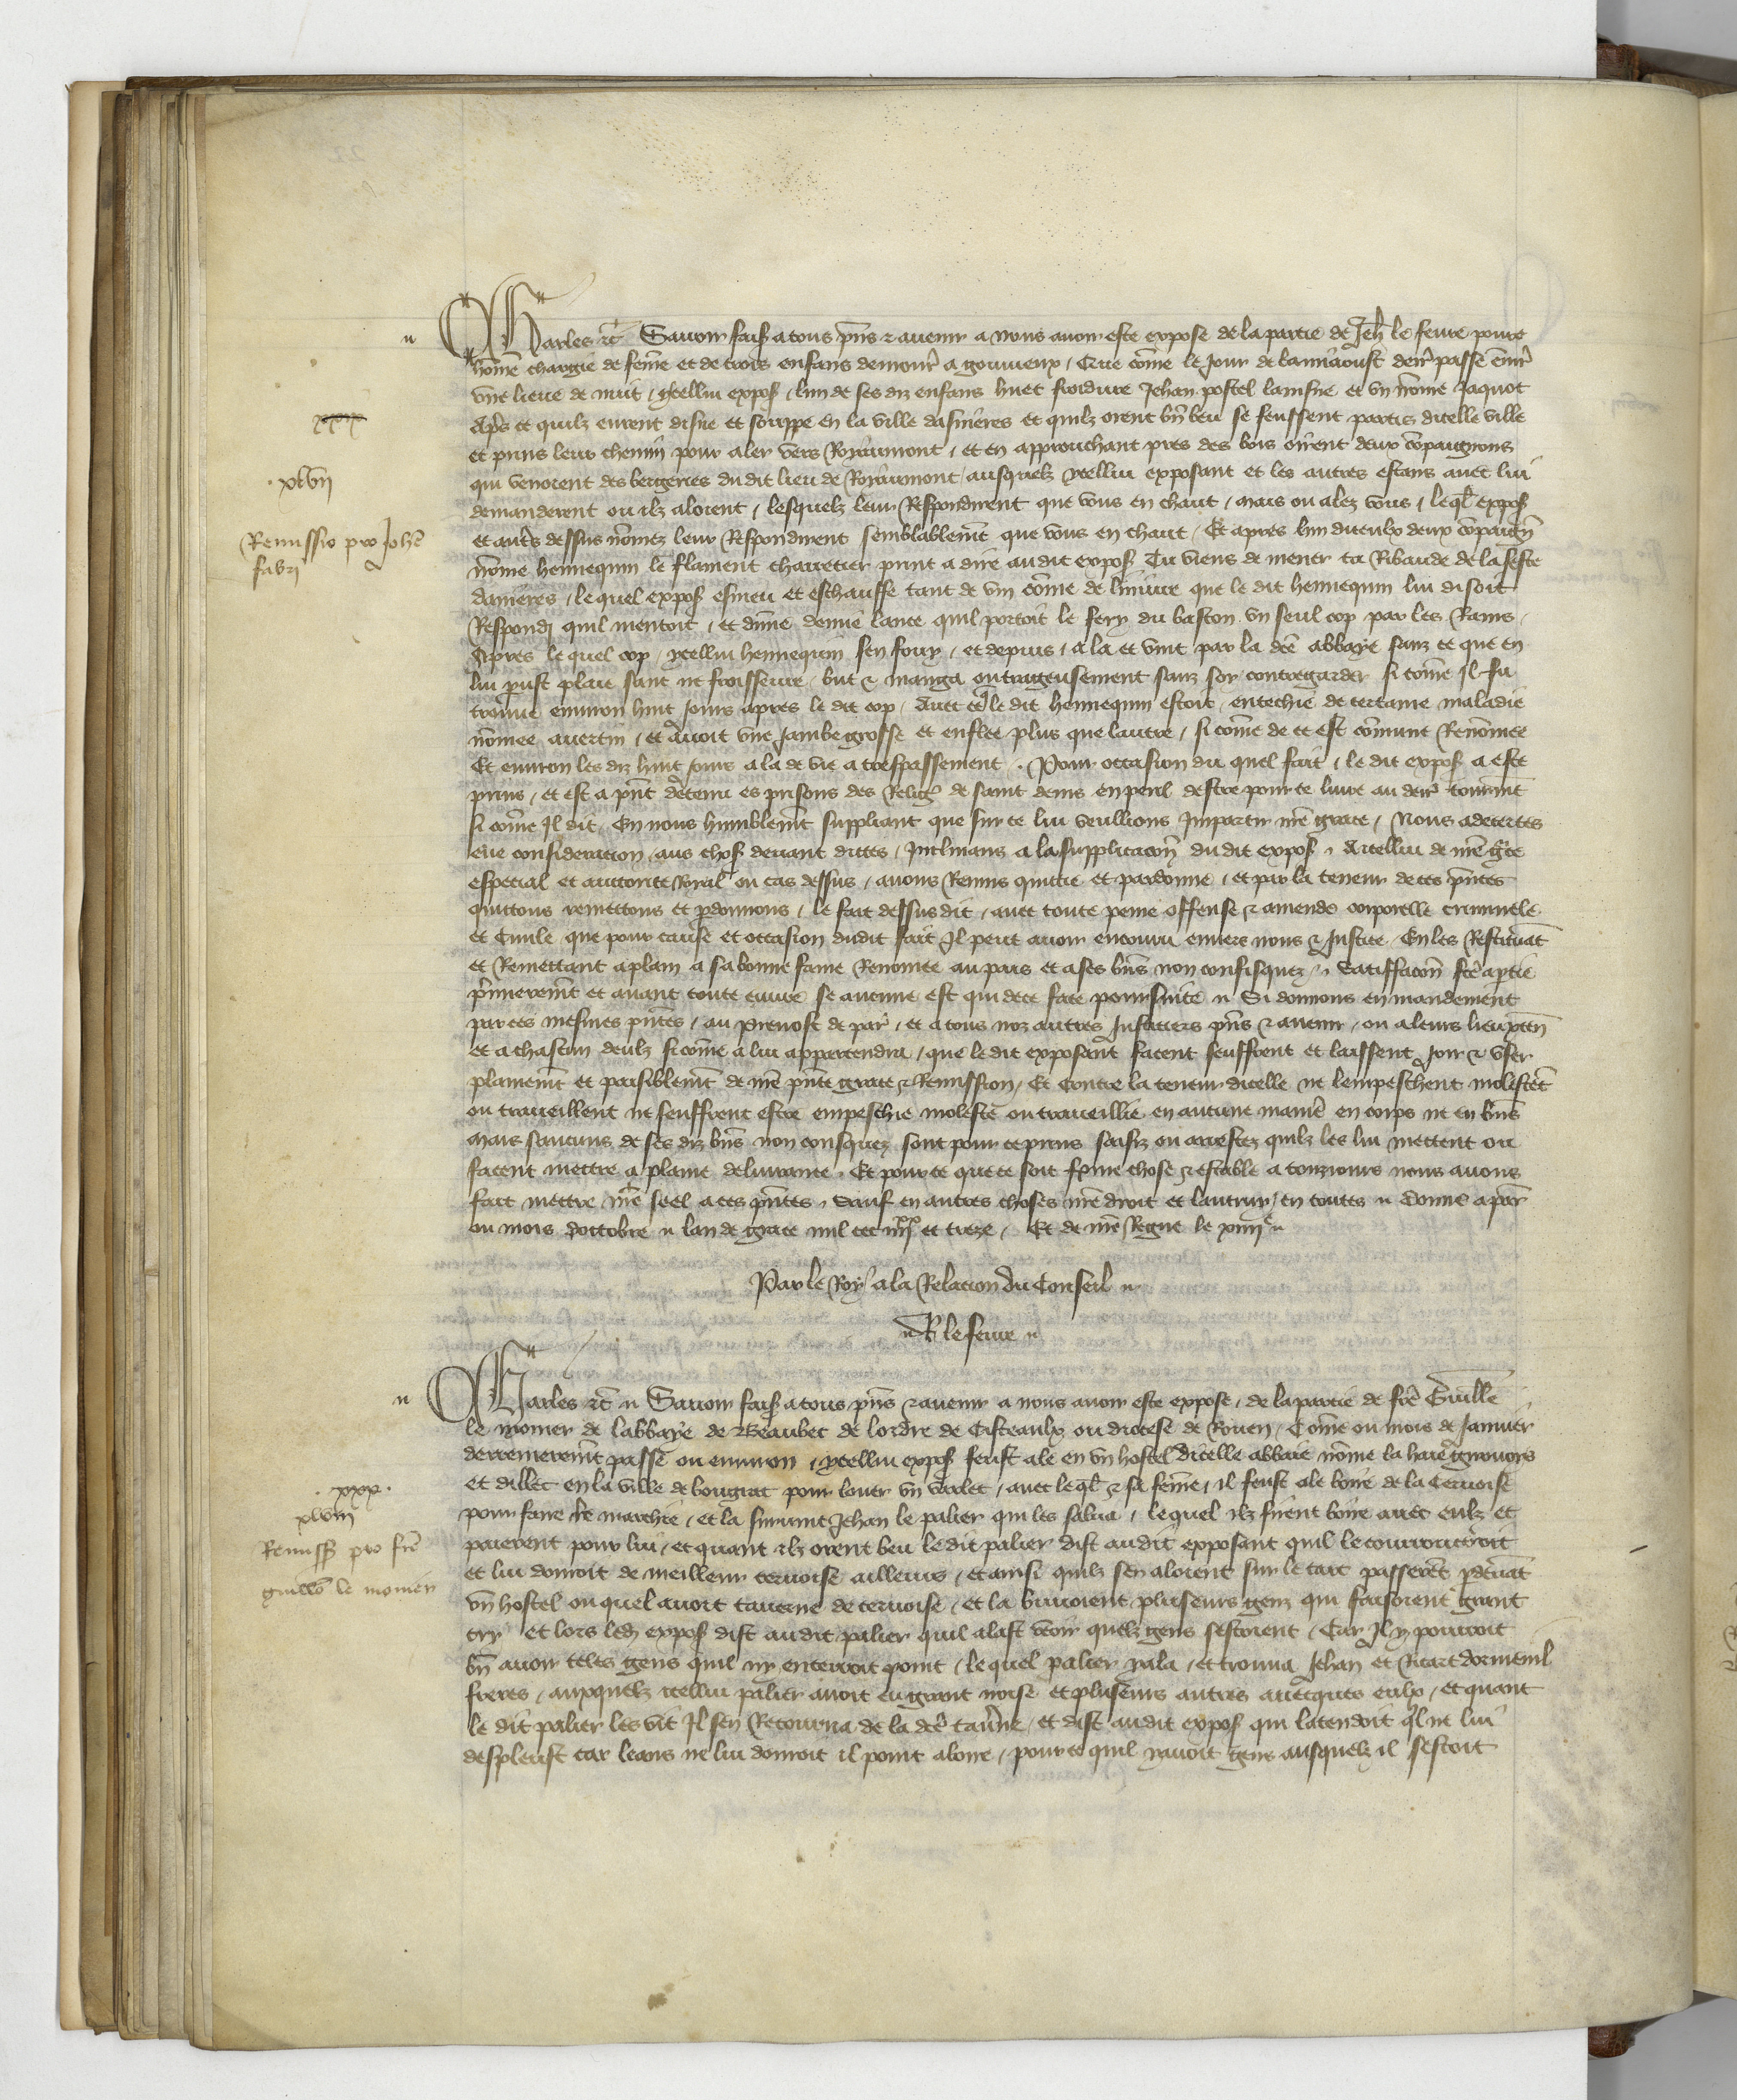 Charles etc̃ Savoir faiſ a tous p̃ns et avenir a nous avoir este expose de la partie de Jeh̃ le fevre povre
hom̃e chargie de fem̃e et de trois enfans demour̃ a gouvieux / Que com̃e le Jour de la miaoust derr̃ passe
vne lieue de nuit / ycellui expoſ / lun de ses diz enfans huet froidure Jehan postel lainsne et vn nõme Jaquot
Apr̃s ce quilz eurent disne et souppe en la ville dasnieres et quilz orent bñ beu se feussent partis dicelle ville
et prins leur chemin pour aler vers Royaumont / et en approuchant pres des bois oirent deux cõpaignons
qui venoient des bergeries du dit lieu de Royaumont / ausquelz ycellui exposant et les autres estans avec lui
demanderent ou ilz aloient / lesquelz leur Respondirent que vous en chaut / mais ou alez vous / leq̃l expoſ
et autr̃s dessus nõmez leur Respondirent semblablem̃t que vous en chaut / Et apres lun diceulx deux cõpaign̄
nõme hennequin le flament charretier print a dire au dit expoſ Tu viens de mener ta Ribaude de la feste
danieres / le quel expoſ esmeu et eschauffe tant de vin cõme de liniure que le dit hennequin lui disoit
Respondi quil mentoit / et dune demie lance quil portoit le fery du baston vn seul cop par les Rains /
Apres le quel cop / ycellui hennequin sen fouy / et depuis / ala et vint par la dc̃e abbaye sanz ce que en
lui p̃ust plaie sanc ne froisseure / but et manga oultrageusement sanz soy contregarder si cõme Jl fu
trouve environ huit jours apres le dit cop / Avec ce le dit hennequin estoit entechie de certaine maladie
nõmee avertin / et avoit vne Jambe grosse et enflee plus que lautre / si cõme de ce est cõmune Renõmee
Et environ les diz huit jours ala de vie a trespassement . Pour occasion du quel fait / le dit expoſ a este
prins / et est a p̃nt detenu es prisons des Relig̃ de saint denis en peril destre pour ce livre au derr̃ tourm̃t
si cõme Jl dit / En nous humblem̃t suppliant que sur ce lui veullions Jmpartir nr̃e grace / Nous adecertes
eue consideracion aus choſ devant dittes / Jnclinans a la supplicacoñ du dit expoſ / A icellui de nr̃e gr̃ce
especial et auctorite Royal ou cas dessus / avons Remis quittie et pardonne / et par la teneur de ces p̃ntes
quittons remettons et p̃donnons / le fait dessus dit / avec toute peine offense et amende corporelle criminele
et Civile que pour cause et occasion dudit fait Jl peut avoir encouru envers nous et Justice / En les Restituãt
et Remettant a plain a sa bonne fame Renõmee au pais et a ses bñs non confisquez / Satiffacoñ fc̃e a p̃tie
p̃mierem̃t et avant toute euvre se aucune est qui dece face poursuite Si donnons en mandement
par ces mesmes p̃ntes / au Prevost de par̃ / et a tous noz autres Justiciers p̃ns et avenir / ou a leurs lieuxteñ
et a chascun deulx si cõme a lui appartendra / que le dit exposant facent seuffrent et laissent Joir et vser
plainem̃t et paisiblem̃t de nr̃e p̃nte grace et Remission / Et Contre la teneur dicelle ne lempeschent molestẽt
ou traveillent ne seuffrent estre empeschie moleste ou traveillie en aucune manier̃ en corps ne en bñs
Mais saucuns de ses diz bñs non confisquez sont pour ce prins saisiz ou arrestez quilz les lui mettent ou
facent mettre a plaine delivrance / Et pour ce que ce soit ferme chose et estable a tousiours nous avons
fait mettre nr̃e seel a ces p̃ntes / Sauf en autres choses nr̃e droit et lautruy / en toutes Donne a par̃
ou mois doctobre lan de grace mil ccc iiijxx et treze / Et de nr̃e Regne le xiiije
Par le Roy a la Relacion du Conseil
R le fevre
xxx
xlvij
Remissio pro Johe
fabri
Charles etc̃ Savoir faiſ a tous p̃ns et avenir a nous avoir este expose / de la partie de frer̃ Guille
le monier de labbaye de Beaubec de lordre de Cisteaulx ou diocese de Rouen / Com̃e ou mois de Janvier
derrenierem̃t passe ou environ / ycellui expoſ feust ale en vn hostel dicelle abbaie nõme la haie
et dillec en la ville de bougrat pour louer vn varlet / avec leq̃l et sa fem̃e / il feust ale boire de la Cervoise
pour faire le marchie / et la survint Jehan le palier qui les salua / lequel ilz firent boire avec eulz et
paierent pour lui / et quant ilz orent beu le dit palier dist au dit exposant quil le convoieroit
et lui donroit de meilleur cervoise ailleurs / et ainsi quilz sen aloient sur le tart passerẽt p̃ devãt
vn hostel ou quel avoit taverne de cervoise / et la buvoient pluseurs genz qui faisoient grant
cry et lors led expoſ dist au dit palier quil alast veoir quelz gens sestoient / Car Jl y pouvoit
bñ avoir teles gens quil ny enterroit point / le quel palier yala / et trouva Jehan et Ricart dormenil
freres / auxquelz icellui palier avoit eu grant noise et pluseurs autres avecques eulx / et quant
le dit palier les vit Jl sen Retourna de la dc̃e tav̄ne / et dist au dit expoſ qui latendoit q̃l ne lui
despleust car leans ne lui donroit il point aboire / pour ce quil yavoit gens ausquelz il sestoit
. xxx .
xlviij
Remiss pro frẽ
guillo le monier